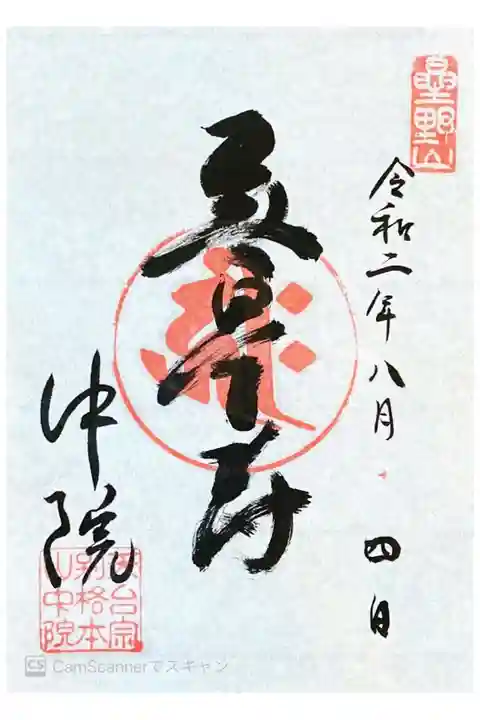 星野山
令和二年八月 四日
無量寿
中院
天台宗
別格本
山中院
CS CamScannerでスキャン